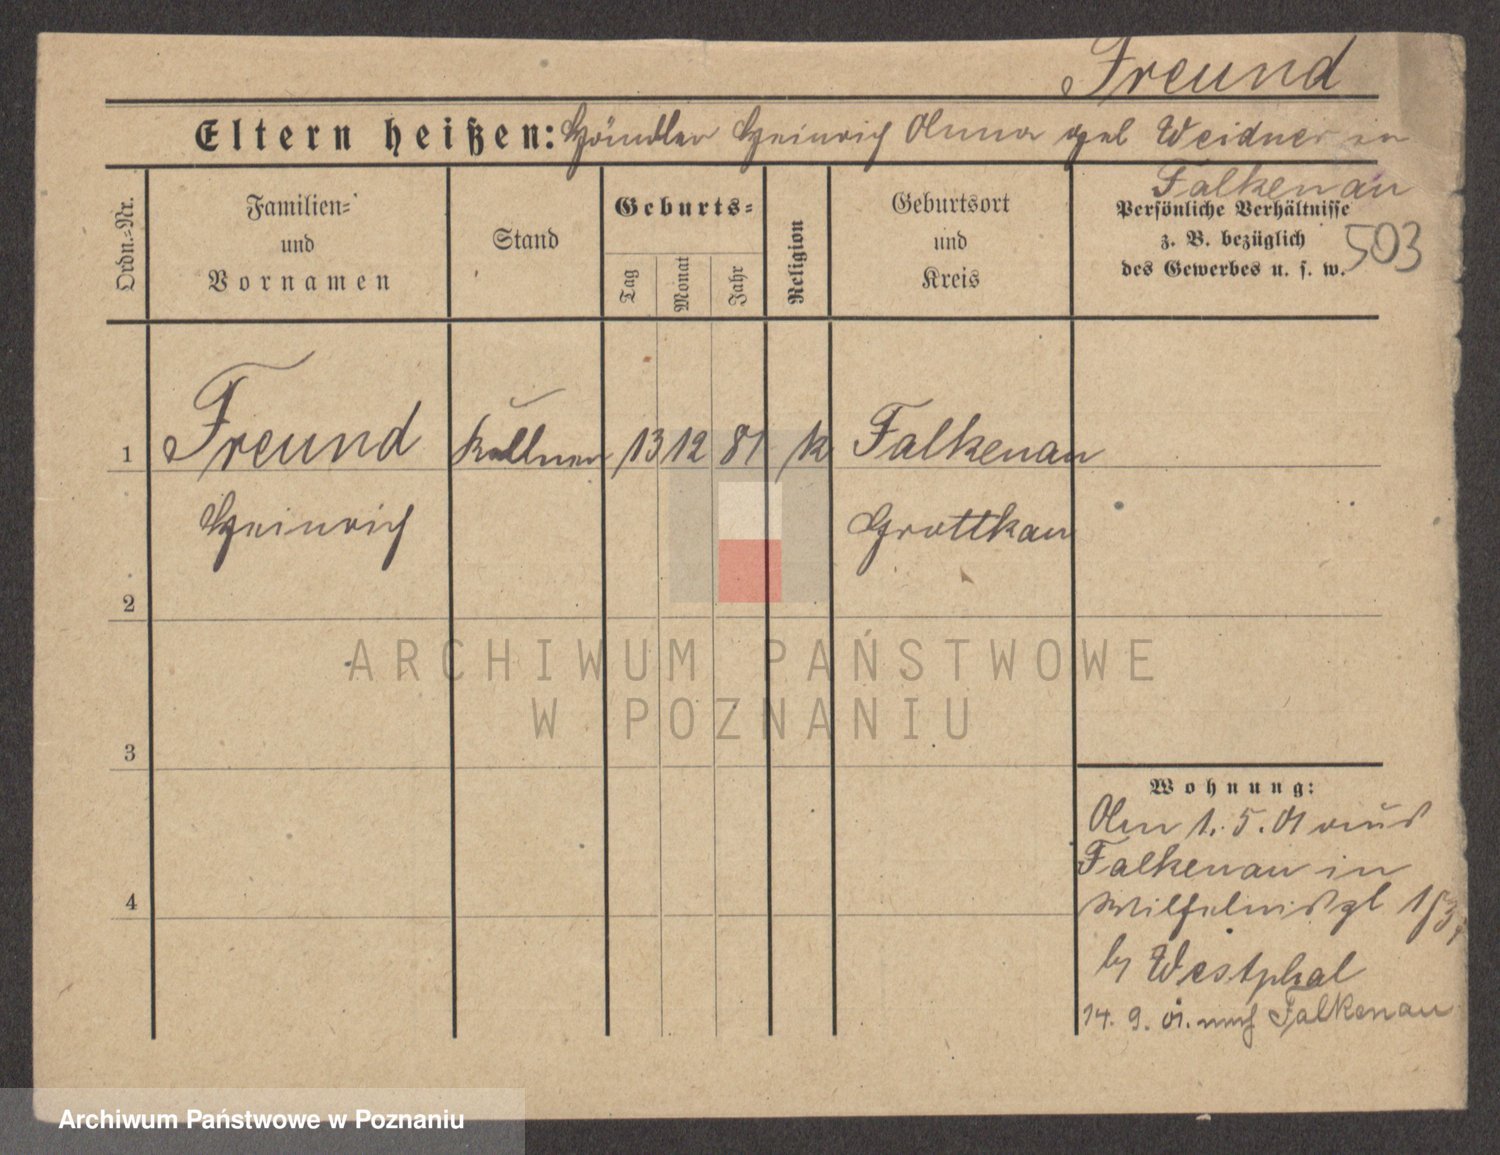 Freund
Eltern heißen: Händler Heinrich Anna geb Weidner in
Falkenau
Ordn.-Nr.
Familien-
und
Vornamen
Stand
Geburts-
Tag
Monat
Jahr
Religion
Geburtsort
und
Kreis
Persönliche Verhältnisse
z. B. bezüglich
des Gewerbes u. s. w.
503
1 Freund Kellner 13 12 81 k Falkenau
Heinrich Grottkau
2
3
4
ARCHIWUM PAŃSTWOWE
W POZNANIU
Wohnung:
Am 1. 5. 01 aus
Falkenau in
by Westphal
14. 9. 01. nach Falkenau
Archiwum Państwowe w Poznaniu